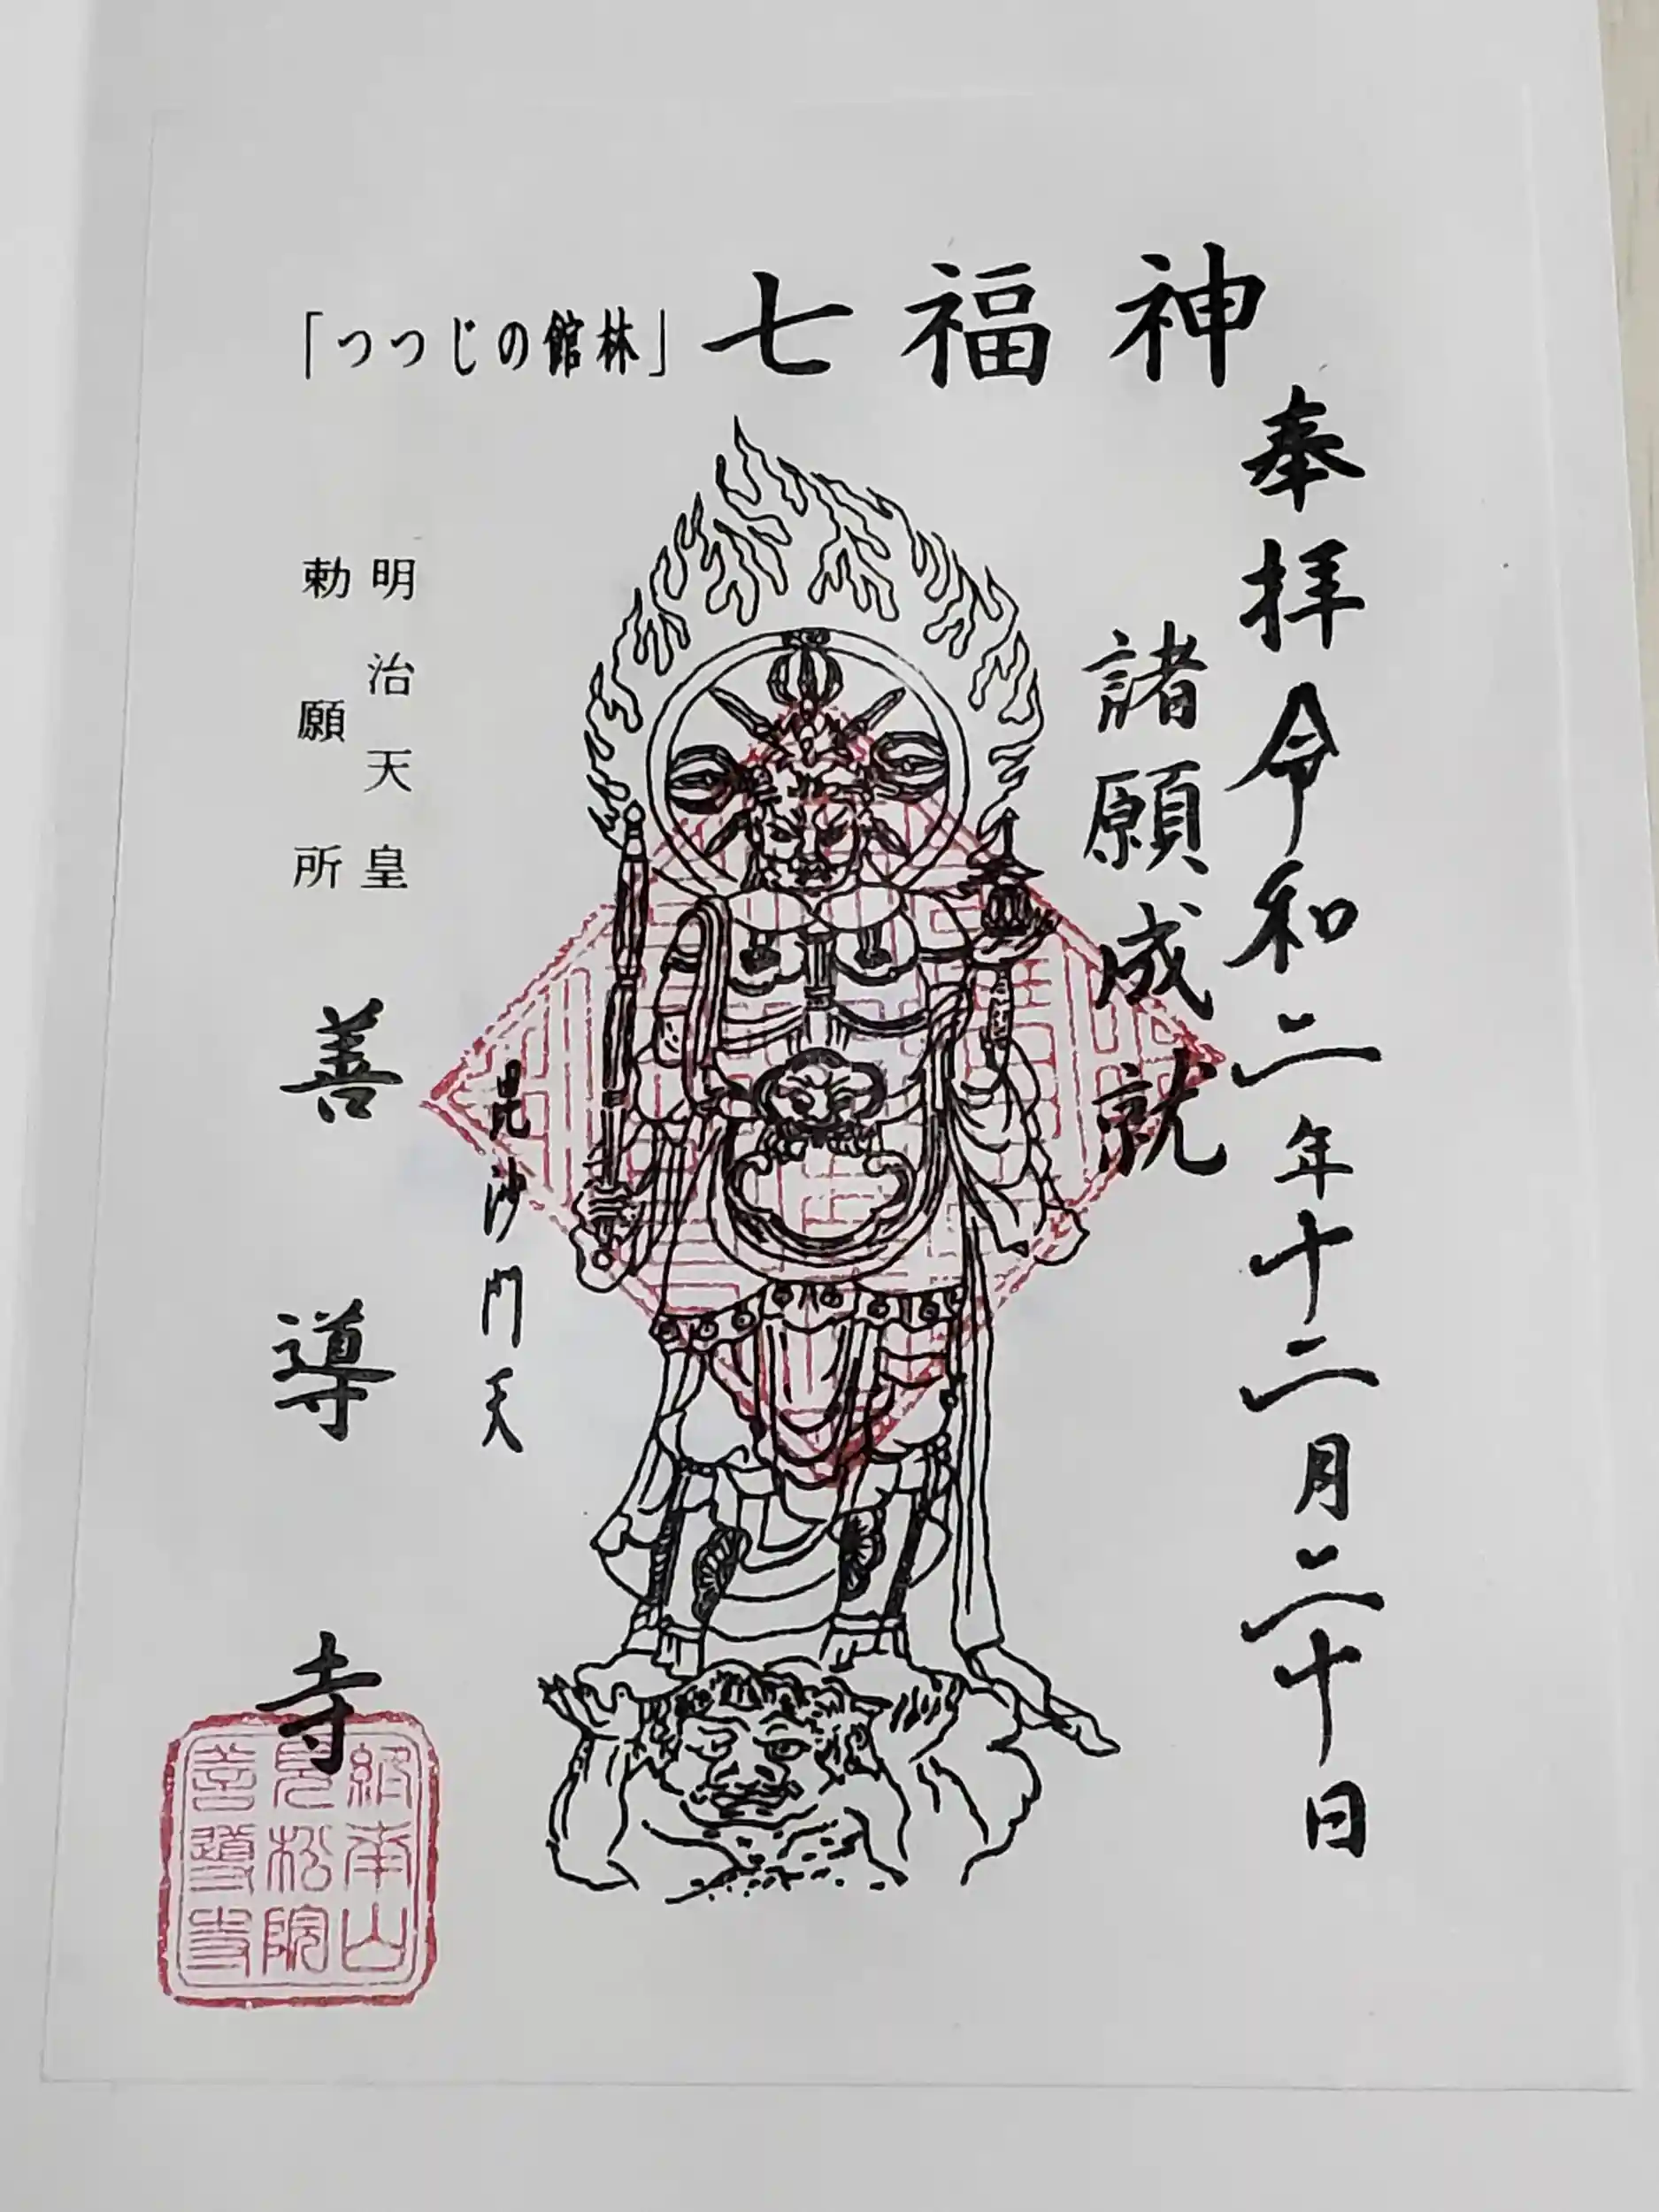 「つつじの館林」七福神
奉拝 令和二年十二月二十日
諸願成就
毘沙門天
明治天皇
勅願所
善導寺
終南山
見松院
善導寺